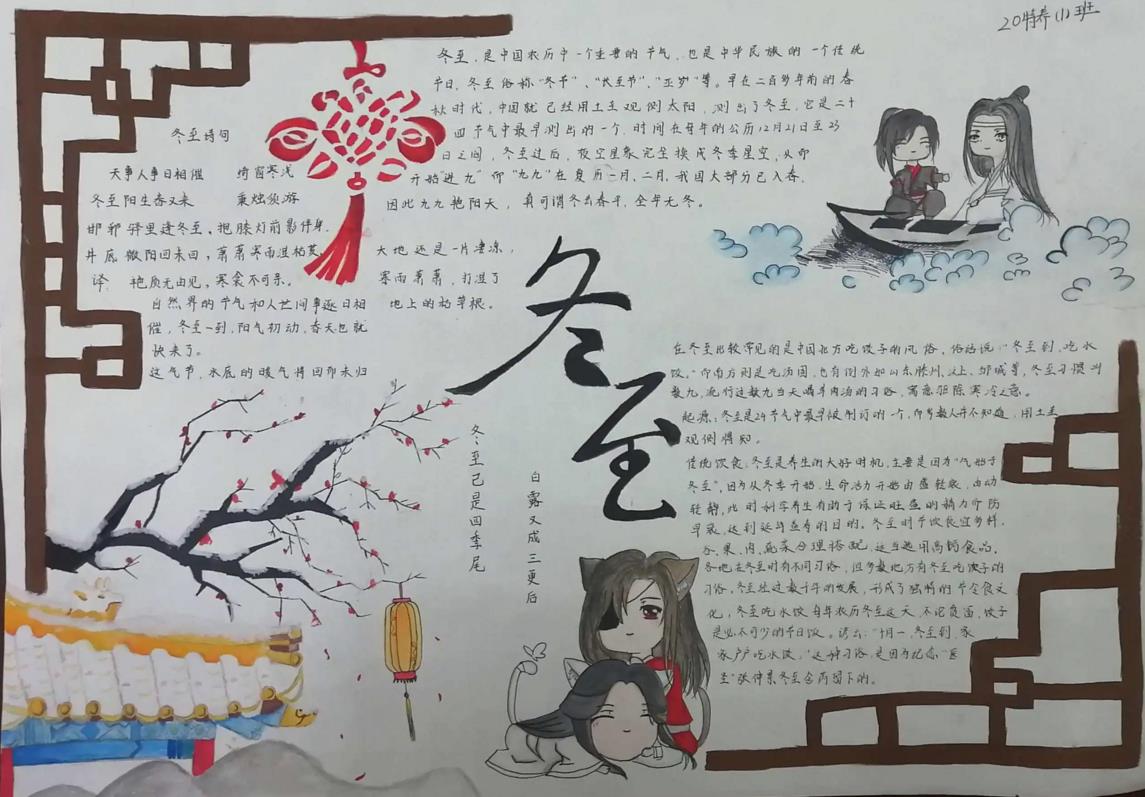 20特养(1)班
冬至诗句
天事人事日相催 绮窗寒浅
冬至阳生春又来 秉烛须游
邯郸驿里逢冬至，抱膝灯前影伴身.
井底微阳回未回，萧萧寒雨湿枯荄.
译. 艳质无由见，寒衾不可亲。
自然界的节气和人世间事逐日相
催，冬至一到，阳气初动，春天也就
快来了。
这气节，水底的暖气将回却未归
大地还是一片凄凉，
寒雨萧萧，打湿了
地上的枯草根。
冬至，是中国农历中一个重要的节气，也是中华民族的一个传统
节日，冬至俗称"冬节"、"长至节"、"亚岁"等。早在二百多年前的春
秋时代，中国就已经用土圭观侧太阳，测出了冬至，它是二十
四节气中最早测出的一个，时间在每年的公历12月21日至23
日之间，冬至过后，夜空星象完全换成冬季星空，从即
开始"进九"而"九九"在夏历一月、二月，我国大部分已入春，
因此九九艳阳天，真可谓冬去春来，全年无冬。
冬至
冬至已是四季尾
白露又成三更后
在冬至比较常见的是中国北方吃饺子的风俗，俗话说："冬至到，吃水
饺。"而南方则是吃汤圆，也有例外如山东滕州，冬至习惯叫
数九，流行过数九当天喝羊肉汤的习俗，寓意驱除寒冷之意。
起源：冬至是24节气中最早被制订的一个，而多数人并不知道，用土圭
观侧得知。
传统饮食：冬至是养生的大好时机，主要是因为"气始于
冬至"，因为从冬季开始，生命活力开始由盛转衰，由动
转静，此时科学养生有助于保证旺盛的精力而防
早衰，达到延年益寿的目的。冬至时节饮食宜多样，
谷、果、肉、蔬菜合理搭配，适当选用高钙食品。
各地在冬至时有不同习俗，但多数地方有冬至吃饺子的
习俗，冬至经过数千年的发展，形成了独特的节令食文
化，冬至吃水饺每年农历冬至这天，不论贫富，饺子
是必不可少的节日饭。谚云："十月一，冬至到，家
家户户吃水饺，"这种习俗，是因为纪念"医
圣"张仲景冬至舍药留下的。